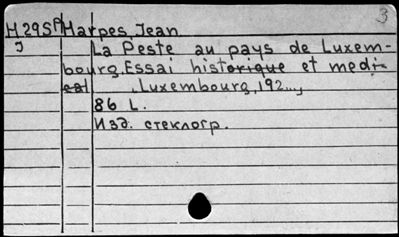 3
H29SA Harpes, Jean
J La Peste au pays de Luxem-
bourg, Essai historique et medi-
cal , Luxembourg, 192...,
86 L.
Изд. стеклогр.